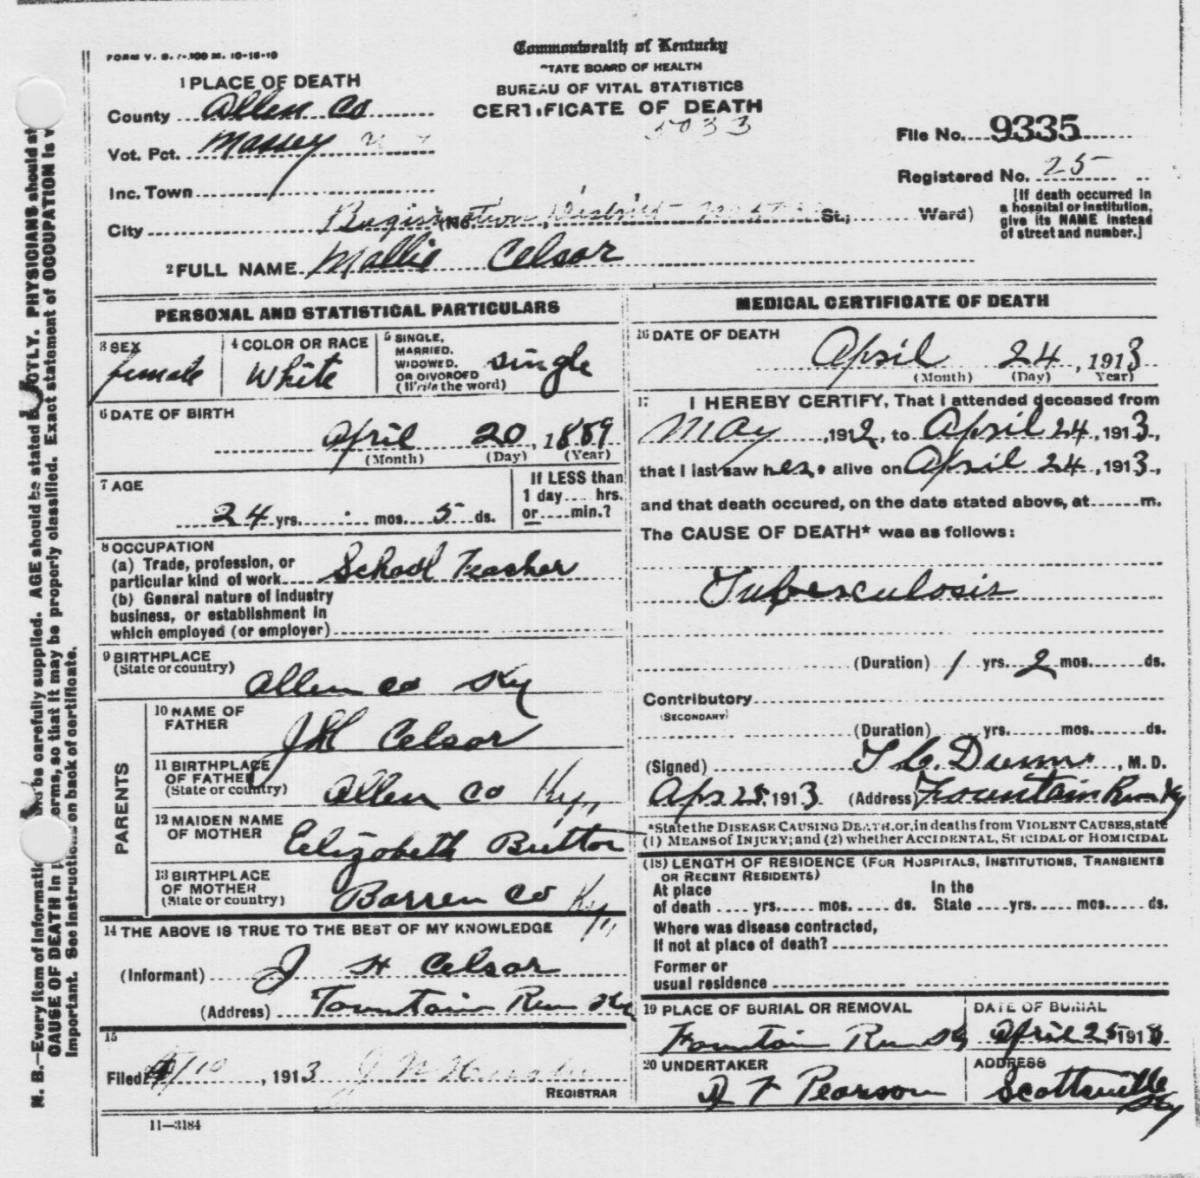 FORM V. S. 1-200 M. 10-15-10
Commonwealth of Kentucky
STATE BOARD OF HEALTH
BUREAU OF VITAL STATISTICS
CERTIFICATE OF DEATH
5033
1 PLACE OF DEATH
County Allen Co
Vot. Pct. Massey
Inc. Town
City Registration District (No. St.; Ward)
File No. 9335
Registered No. 25
[If death occurred in
a hospital or institution,
give its NAME instead
of street and number.]
2 FULL NAME Mallie Celsor
PERSONAL AND STATISTICAL PARTICULARS
3 SEX
female
4 COLOR OR RACE
White
5 SINGLE,
MARRIED,
WIDOWED,
OR DIVORCED
(Write the word)
single
6 DATE OF BIRTH
April 20, 1889
(Month) (Day) (Year)
7 AGE
24 yrs. mos. 5 ds.
If LESS than
1 day.... hrs.
or.....min.?
8 OCCUPATION
(a) Trade, profession, or
particular kind of work School Teacher
(b) General nature of industry
business, or establishment in
which employed (or employer)
9 BIRTHPLACE
(State or country)
Allen Co Ky
PARENTS
10 NAME OF
FATHER
J H Celsor
11 BIRTHPLACE
OF FATHER
(State or country)
Allen Co Ky,
12 MAIDEN NAME
OF MOTHER
Elizabeth Britton
13 BIRTHPLACE
OF MOTHER
(State or country)
Barren Co Ky
14 THE ABOVE IS TRUE TO THE BEST OF MY KNOWLEDGE
(Informant) J H Celsor
(Address) Fountain Run Ky
15
Filed 4/10, 1913 J W
REGISTRAR
11—3184
MEDICAL CERTIFICATE OF DEATH
16 DATE OF DEATH
April 24, 1913
(Month) (Day) Year)
17 I HEREBY CERTIFY, That I attended deceased from
May, 1912, to April 24, 1913,
that I last saw her alive on April 24, 1913,
and that death occured, on the date stated above, at......m.
The CAUSE OF DEATH* was as follows:
Tuberculosis
(Duration) 1 yrs. 2 mos. ds.
Contributory
(SECONDARY)
(Duration) yrs. mos. ds.
(Signed) , M. D.
Apr 25, 1913 (Address) Fountain Run Ky
*State the DISEASE CAUSING DEATH, or, in deaths from VIOLENT CAUSES, state
(1) MEANS OF INJURY; and (2) whether ACCIDENTAL, SUICIDAL or HOMICIDAL
(18) LENGTH OF RESIDENCE (FOR HOSPITALS, INSTITUTIONS, TRANSIENTS
OR RECENT RESIDENTS)
At place
of death .... yrs...... mos...... ds.
In the
State .....yrs......mos.....ds.
Where was disease contracted,
If not at place of death?
Former or
usual residence
19 PLACE OF BURIAL OR REMOVAL
Fountain Run Ky
DATE OF BURIAL
April 25 1913
20 UNDERTAKER
D F Pearson
ADDRESS
Scottsville Ky
N. B.—Every item of information should be carefully supplied. AGE should be stated EXACTLY. PHYSICIANS should st
CAUSE OF DEATH in terms, so that it may be properly classified. Exact statement of OCCUPATION is v
important. See instructions on back of certificate.